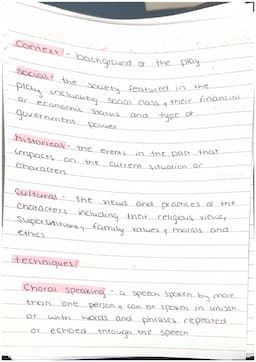 Context - background of the play
Social - the society featured in the
play, including social class, their financial
or economic status and type of
government power
historical - the events in the past that
impacts on the current situation or
characters
Cultural - the views and practices of the
characters including their religious views,
superstitions, family values, morals and
ethics
techniques
Choral speaking - a speech spoken by more
than one person, can be spoken in unison
or with words and phrases repeated
or echoed through the speech